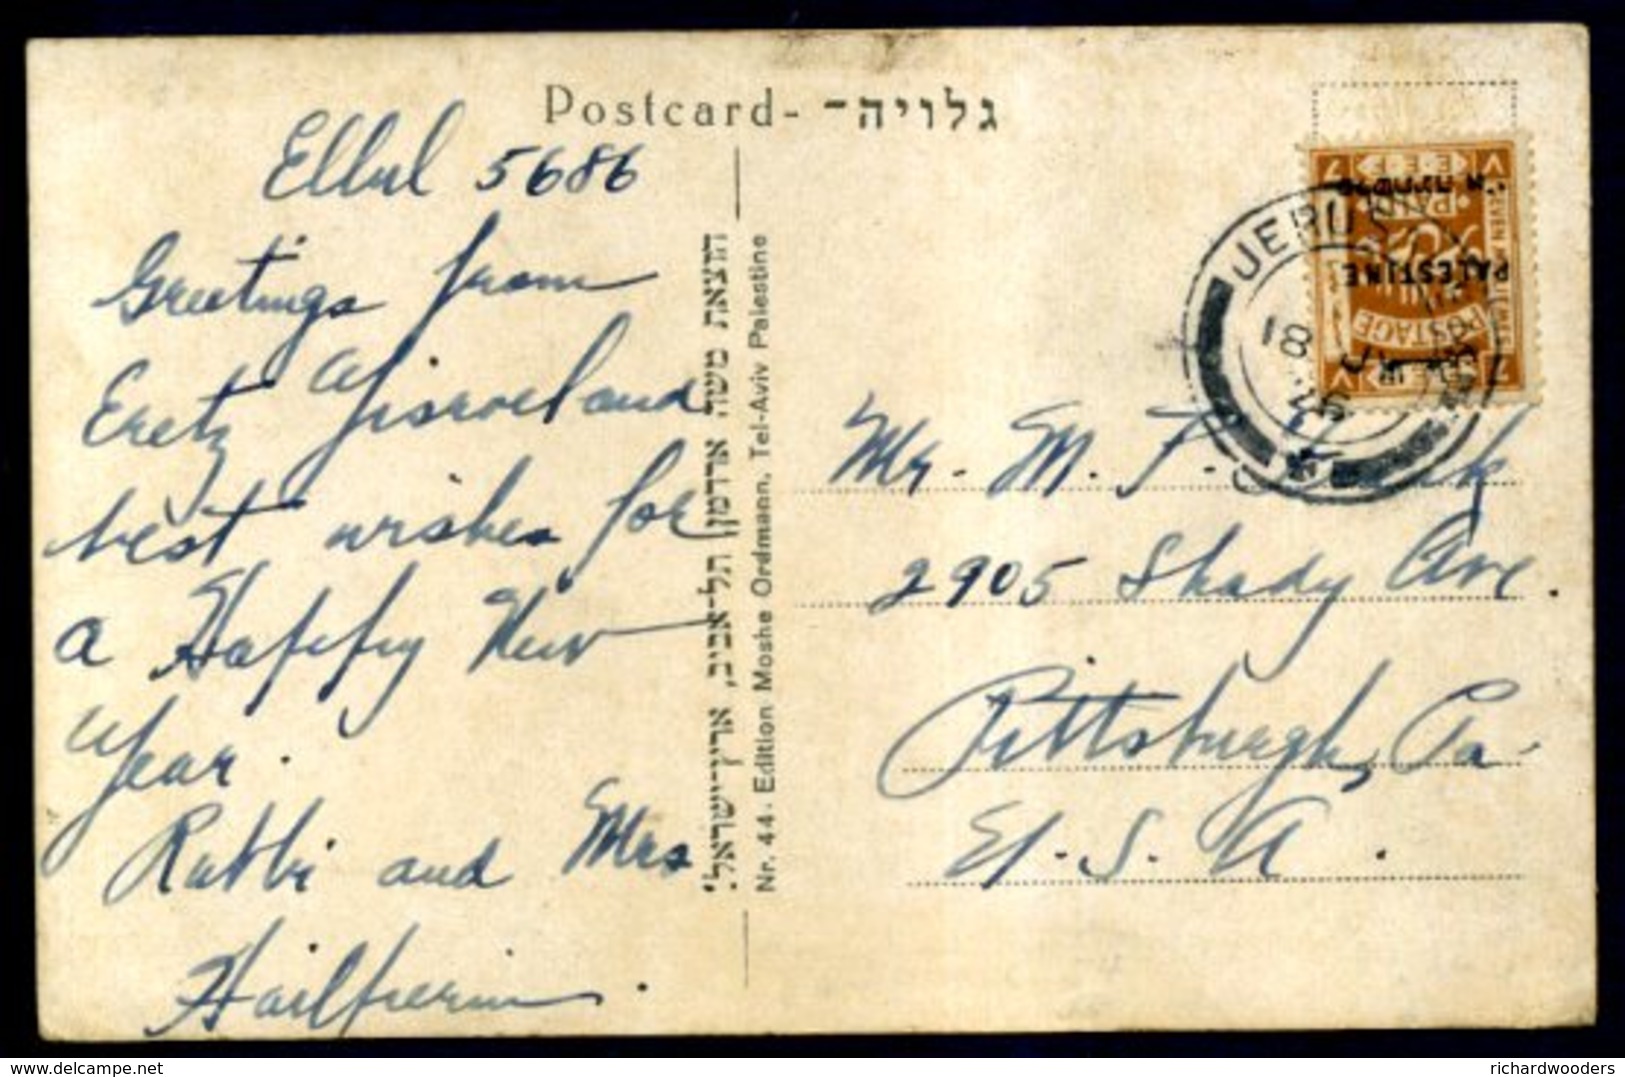 Postcard- גלויה־
Ellul 5686
Greetings from
Eretz Yisroel and
best wishes for
a Happy New
Year.
Rabbi and Mrs
Hailperin.
הוצאת משה ארדמן תל-אביב, ארץ-ישראל.
Nr. 44. Edition Moshe Ordmann, Tel-Aviv Palestine
PALESTINE
POSTAGE
JERUS
18 JY
26
Mr. M. F.
2905 Shady Ave.
Pittsburgh, Pa
U. S. A.
delcampe.net
richardwooders